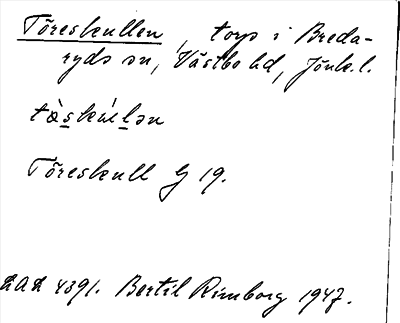 Töreskullen, torp i Breda-
ryds sn, Västbo hd, Jönk.l.
tø̀skúllən
Töreskull G 19.
LAL 4391. Bertil Rimborg 1947.